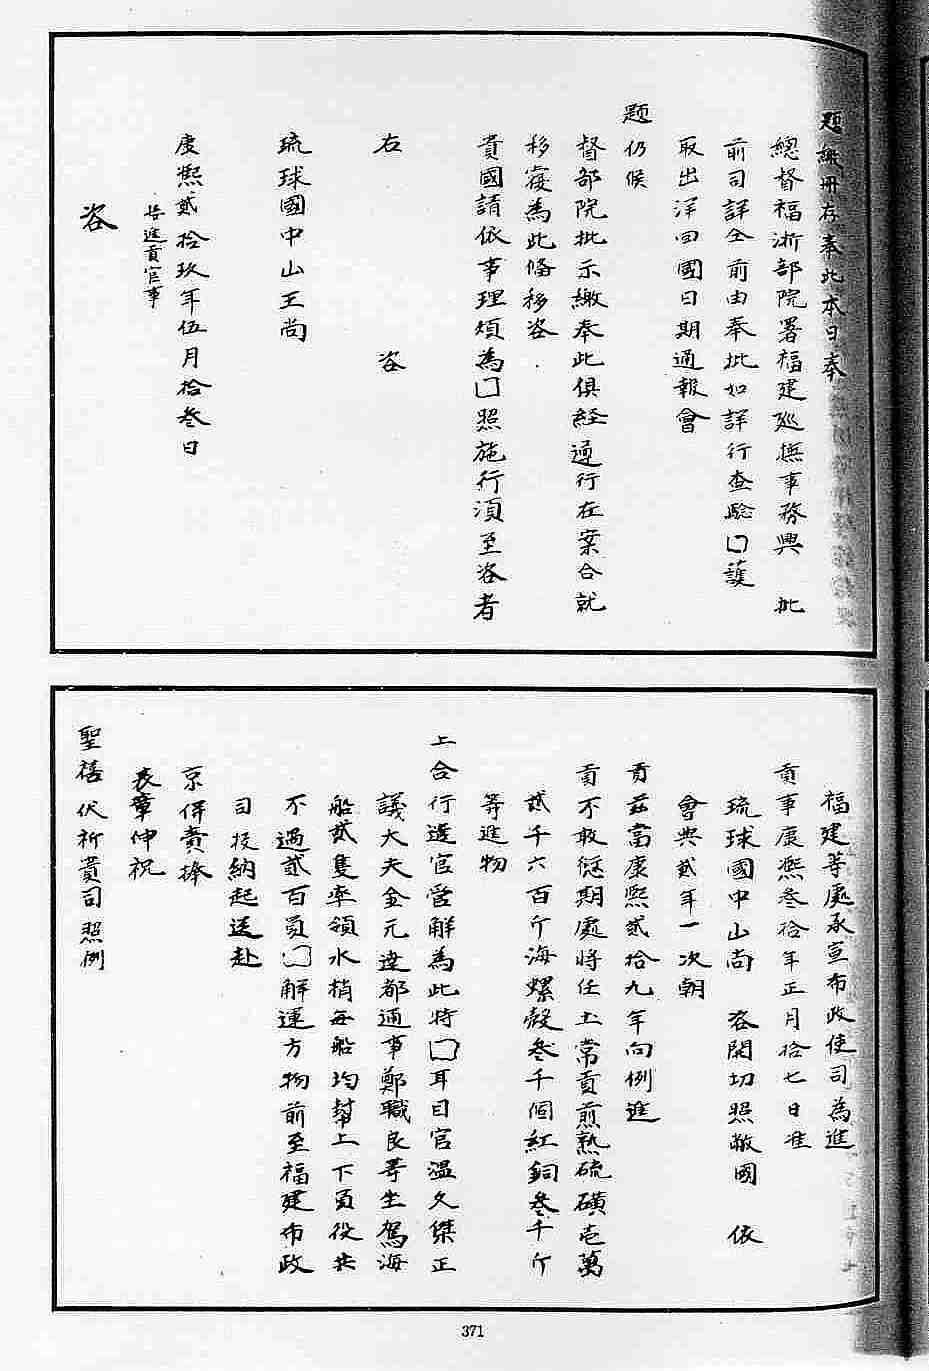 題繳冊存奉此本日奉
總督福浙部院署福建巡撫事務興　批
前司詳仝前由奉批如詳行查驗囗護
取出洋回國日期通報會
題仍候
督部院批示繳奉此俱経通行在案合就
移覆為此俻移咨
貴國請依事理煩為囗照施行湏至咨者
右　咨
琉球國中山王尚
康熙貳拾玖年伍月拾叁日
進貢官事
咨
福建等處承宣布政使司為進
貢事康熙叁拾年正月拾七日准
琉球國中山尚　咨開切照敝國　依
會典貳年一次朝
貢茲當康熙貳拾九年向例進
貢不敢愆期處將任土常貢煎熟硫磺壱萬
貳千六百斤海螺殼叁千個紅銅叁千斤
等進物
上合行遣官管解為此特囗耳目官溫久傑正
議大夫金元達都通事鄭職良等坐駕海
船貳隻率領水梢每船均幇上下員役共
不過貳百員囗解運方物前至福建布政
司投納起送赴
京併賫捧
表章伸祝
聖禧伏祈貴司照例
371